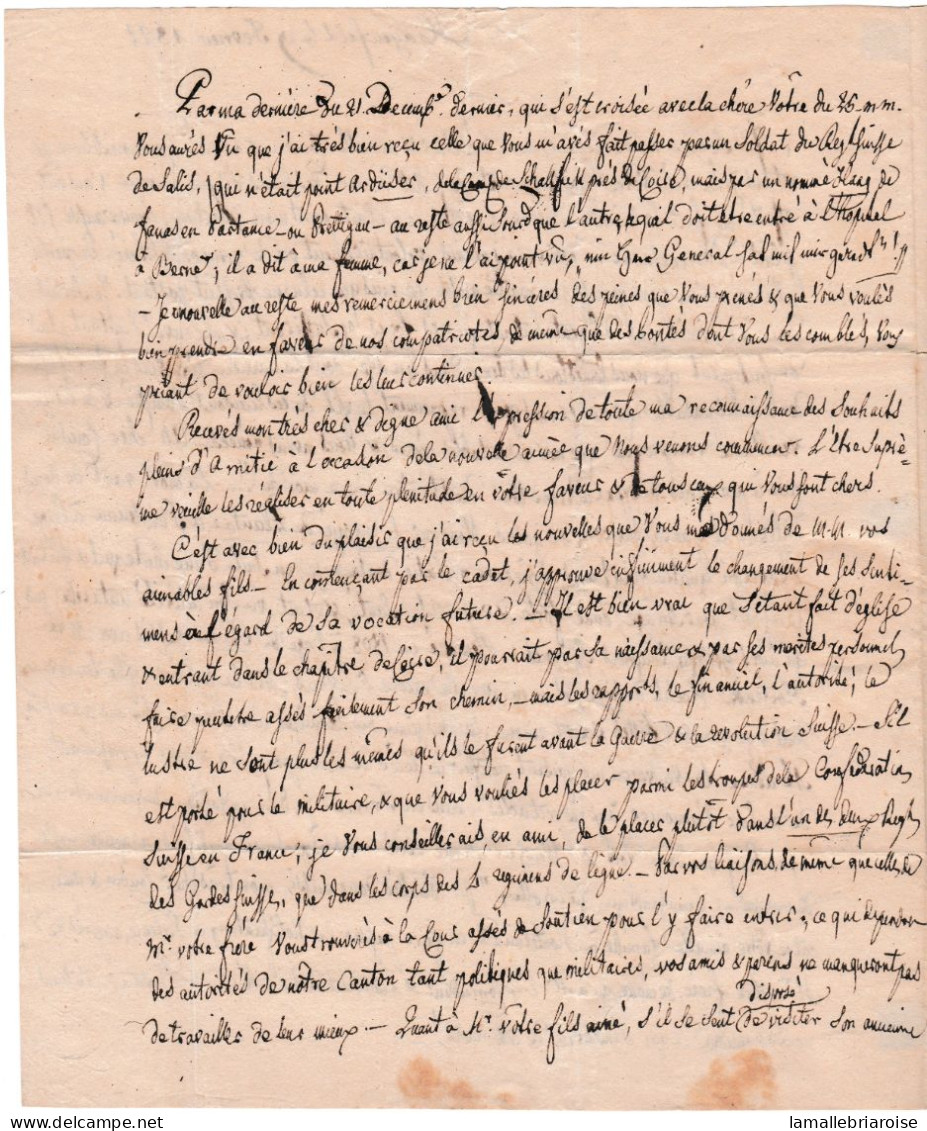 Par ma dernière du 21. Decembre dernier, qui s'est croisée avec la chère Vôtre du 26. m.m.
Vous aurés Vu que j'ai très bien reçu celle que Vous m'avés fait passer par un Soldat du Reg. Suisse
de Salis, qui n'était point Ardüser, de Schallfik près de Coire, mais par un nommé Haag de
fanas en Partance ou Prettigau – au reste aussi Sourd que l'autre, lequel doit être entré à l'hopital
à Berne; il a dit à ma femme, car je ne l'ai point vû, „min Herr General
– Je renouvelle au reste mes remerciemens bien sincères des peines que Vous prenés & que Vous voulés
bien prendre en faveur de nos compatriotes, de même que des bontés dont Vous les comblés, Vous
priant de vouloir bien les leur continuer.
Recevés mon très cher & digne ami l'expression de toute ma reconnaissance des Souhaits
pleins d'Amitié à l'occasion de la nouvelle année que Nous venons commencer. L'Etre Suprè-
me veuille les réaliser en toute plenitude en votre faveur & de tous ceux qui Vous sont chers.
C'est avec bien du plaisir que j'ai reçu les nouvelles que Vous me donnés de M.M. vos
aimables fils – En començant par le cadet, j'approuve infiniment le changement de ses Senti-
mens à l'égard de Sa vocation future. – Il est bien vrai que S'étant fait d'église
& entrant dans le chapitre de Coire, il pourrait par Sa naissance & par Ses merites personnels
faire peutetre assés facilement Son chemin, – mais les rapports, le financiel, l'autorité, le
lustre ne Sont plus les mêmes qu'ils le furent avant la Guerre & la revolution Suisse. – S'il
est porté pour le militaire, & que Vous vouliés les placer parmi les troupes de la Confédération
Suisse en France, je Vous conseillerais, en ami, de le placer plutôt dans l'un des deux Regts
des Gardes Suisses, que dans les corps des 4 regimens de ligne. – Par vos liaisons, de même que celles de
Mr. votre frère Vous trouverés à la Cour assés de Soutien pour l'y faire entrer, ce qui dependra
des autorités de nôtre Canton tant politiques que militaires, vos amis & parens ne manqueront pas
disposé
de travailler de leur mieux. – Quant à Mr. Vôtre fils ainé, s'il se sent de visiter Son ancienne
lamallebriaroise